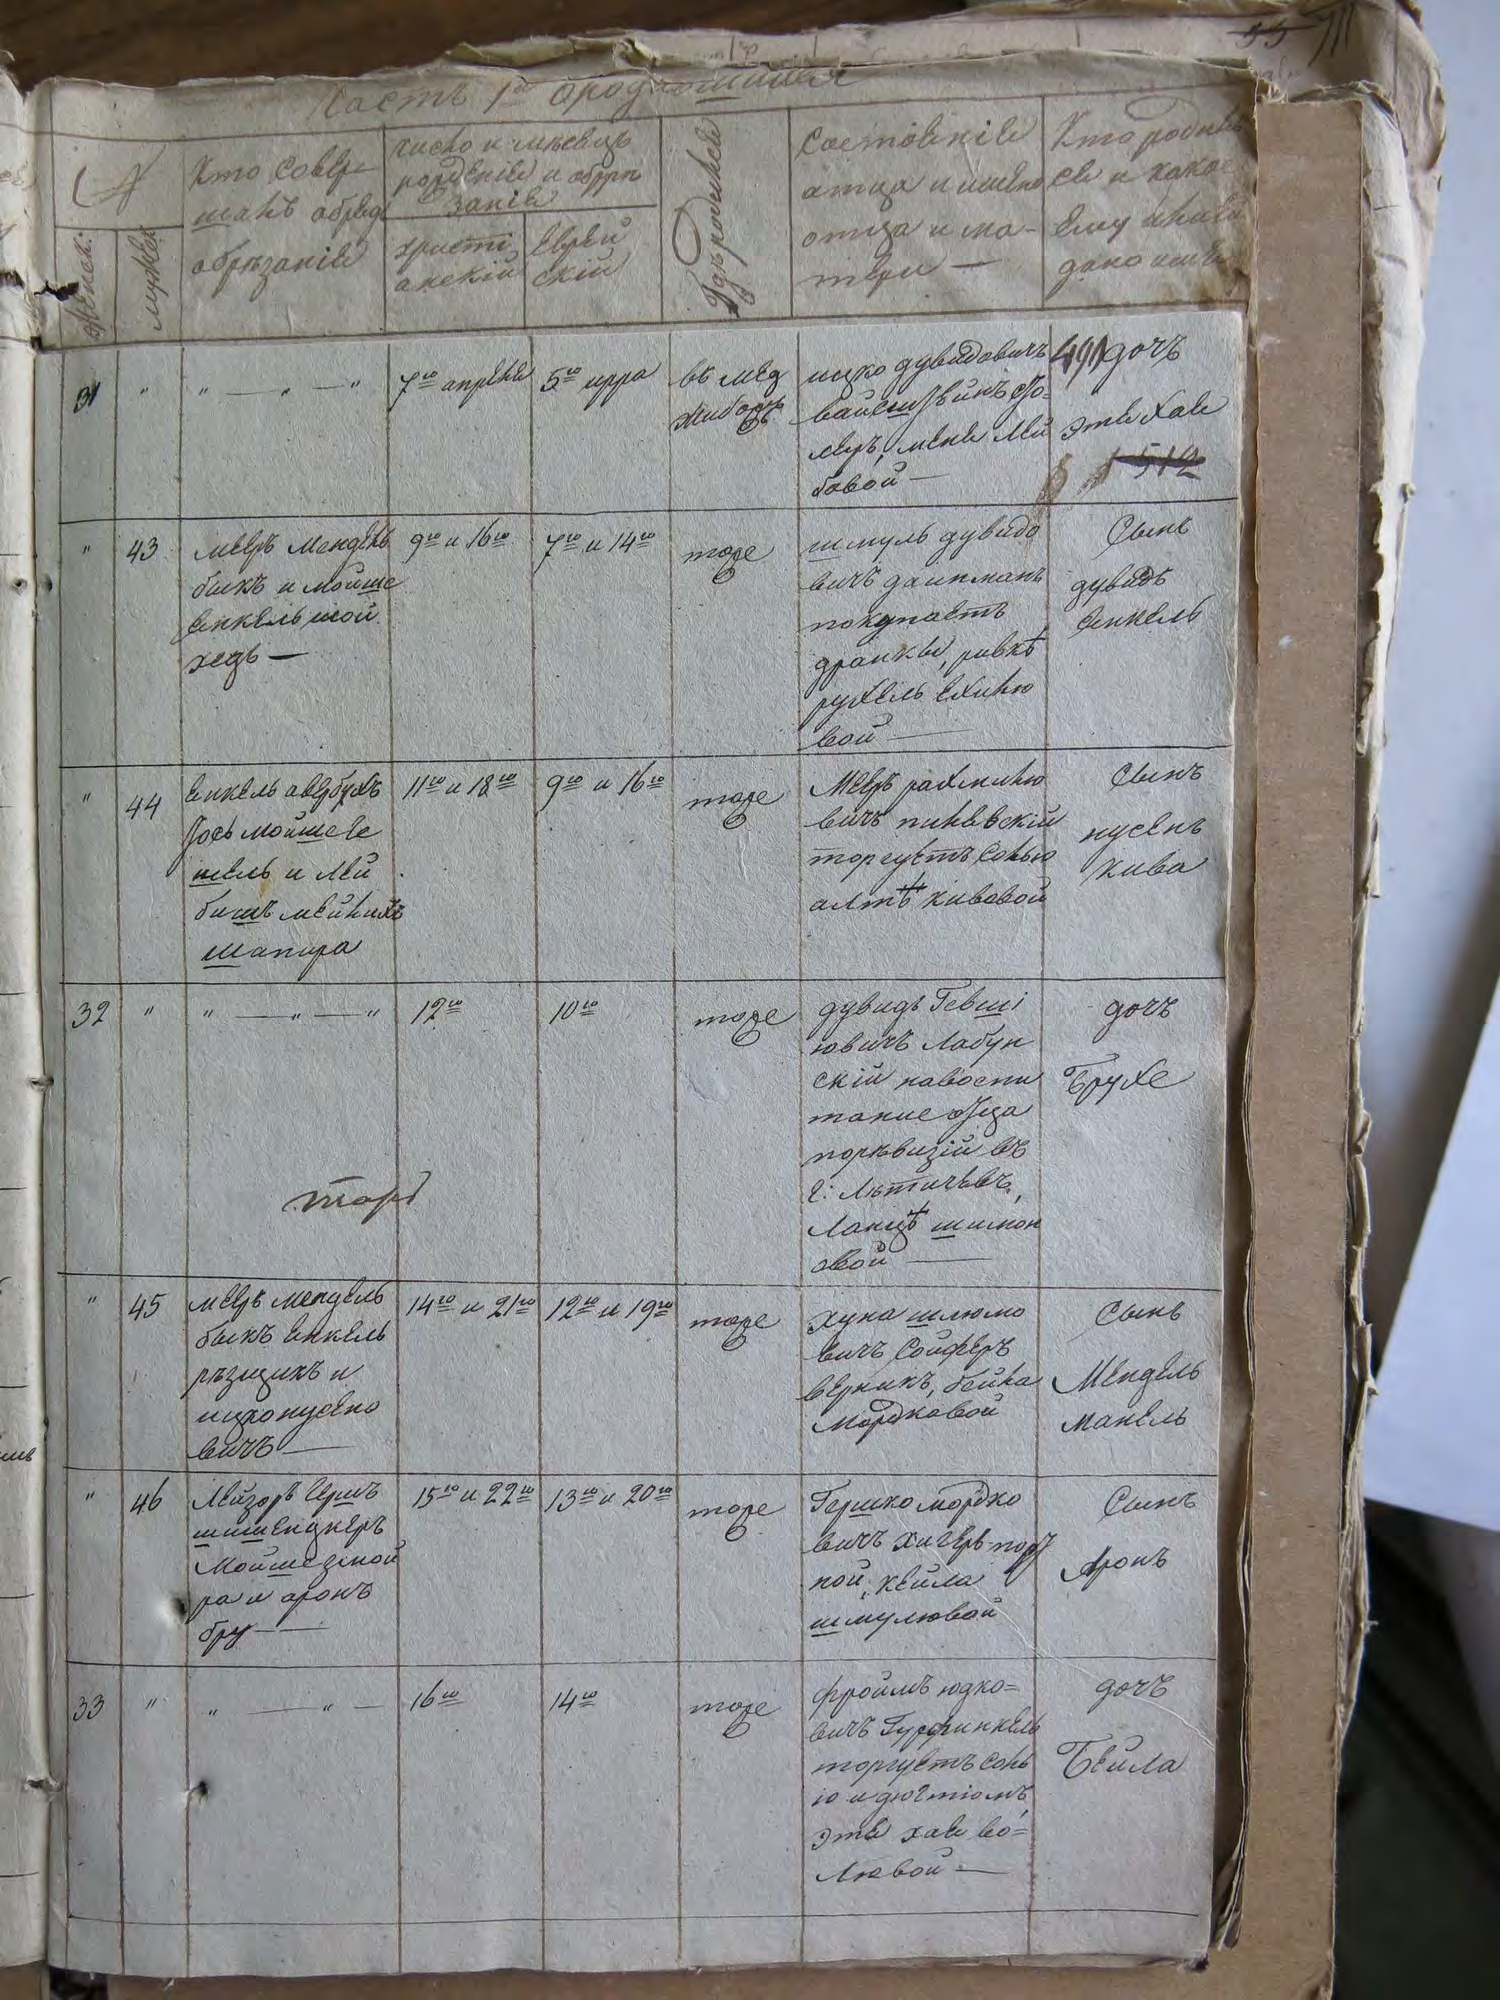 Часть 1ая о родившихся
№
Женск:
мужеск:
Кто совер-
шалъ обряд
обрѣзанія
число и мѣсяцъ
рожденія и обрѣ
занія
христі
анскій
Еврей
скій
Гдѣ родился
Состояніе
отца и имена
отца и ма-
тери —
Кто родил
ся и какое
ему или ей
дано имя
31 " " — " — " 7го апреля 5го ирра
въ Мед
жибожъ
ицко дувидовичъ
вайнштейнъ сто-
леръ, меня Лей
бовой —
491 дочъ
этя Хая
512
" 43
мееръ Мендель
быкъ и мойше
Янкель шой
хедъ —
9го и 16го 7го и 14го тоже
шмуль дувидо
вичъ
покупаетъ
дранки, ривка
рухель Ехилю
вой —
Сынъ
дувидъ
Янкель
" 44
Янкель авербухъ
Іось мойшеве
шель и Лей
бишъ мейлихъ
Шапира
11го и 18го 9го и 16го тоже
Мееръ рахмилю
вичъ пилявскій
торгуетъ солью
алтѣ кивовой
Сынъ
нусенъ
кива
32 " " — " — " 12го 10го тоже
дувидъ Гевші
ювичъ Лабун
скій навоспи
тание отца
поревизіи въ
г: Лѣтичевѣ,
Ланцѣ шимон
овой —
дочъ
Брухе
тоже
" 45
меєръ мендель
быкъ Янкель
рѣзщикъ и
ицко нусено
вичъ —
14го и 21го 12го и 19го тоже
Хуна шлюмо
вичъ Сойферъ
верникъ, бейла
мордковой
Сынъ
Мендель
манель
" 46
Лейзоръ Ершъ
Мойше зной
ра и аронъ
бру —
15го и 22го 13го и 20го тоже
Гершко мордко
вичъ Хигеръ порт
ной, кейла
шмулювой
Сынъ
Аронъ
33 " " — " — 16го 14го тоже
Фроимъ юдко-
вичъ Гурфинкель
торгуетъ соль
ю и дюгтіомъ,
этя хая во-
лювой —
дочъ
Бейла